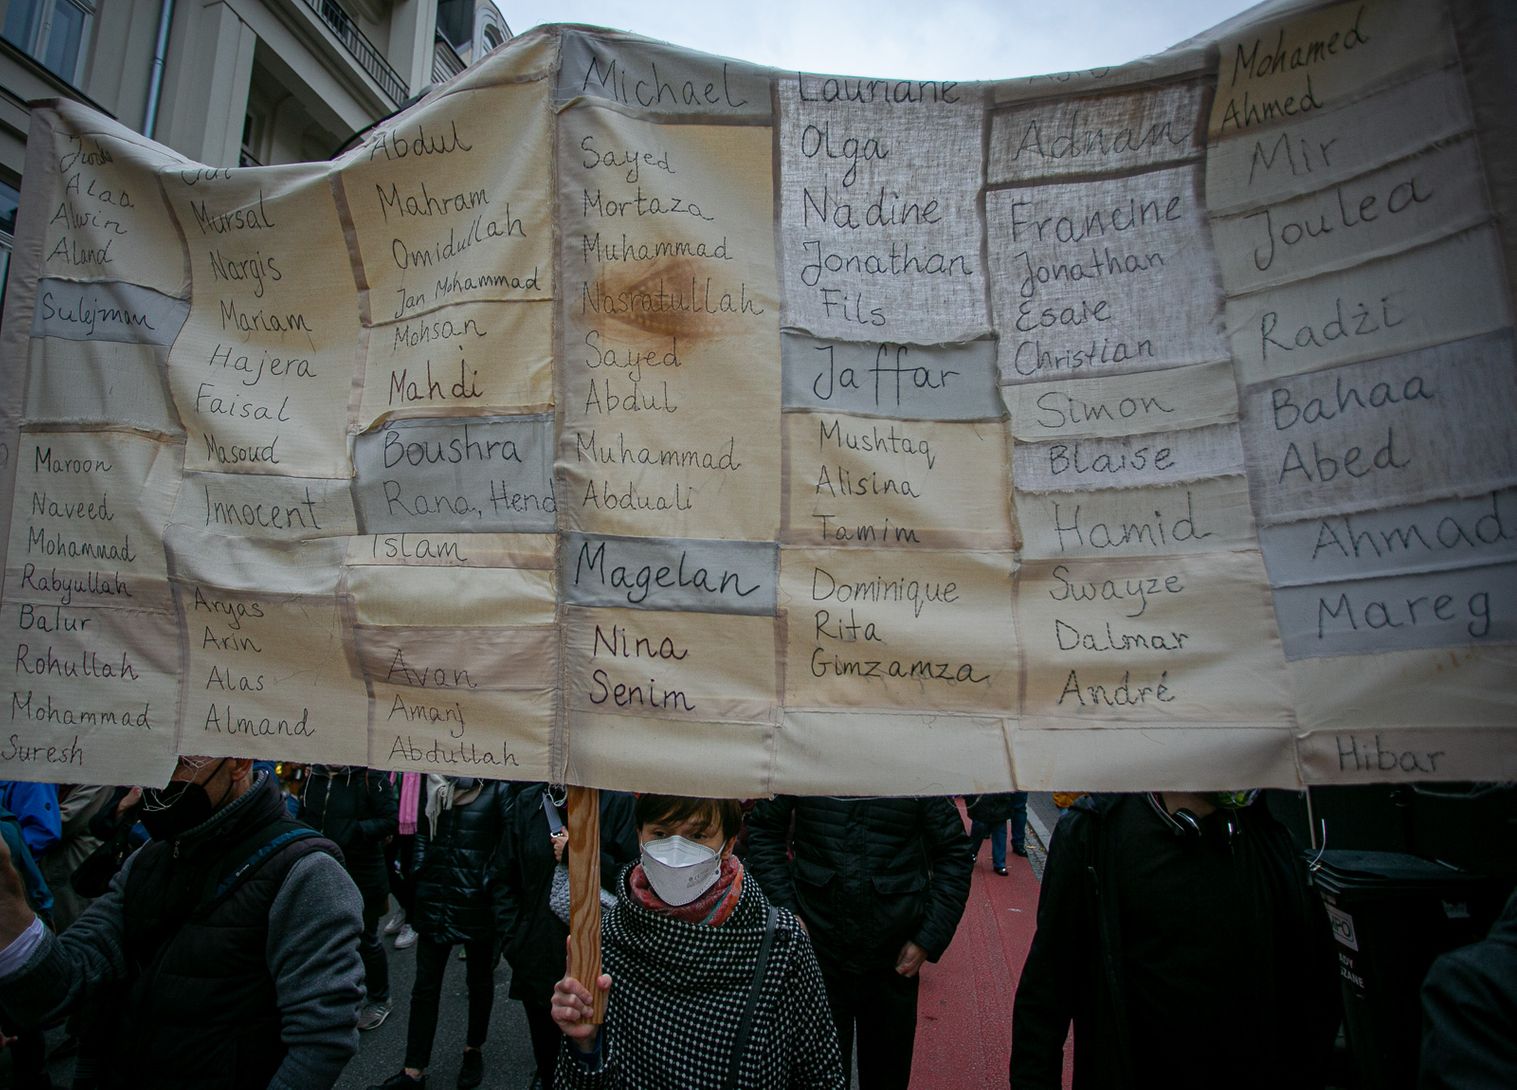 Alaa
Alwin
Aland
Sulejman
Maroon
Naveed
Mohammad
Rabyullah
Balur
Rohullah
Mohammad
Suresh
Mursal
Nargis
Mariam
Hajera
Faisal
Masoud
Innocent
Aryas
Arin
Alas
Almand
Abdul
Mahram
Omidullah
Jan Mohammad
Mohsan
Mahdi
Boushra
Rana, Hend
Islam
Avan
Amanj
Abdullah
Michael
Sayed
Mortaza
Muhammad
Nasratullah
Sayed
Abdul
Muhammad
Abduali
Magelan
Nina
Senim
Lauriane
Olga
Nadine
Jonathan
Fils
Jaffar
Mushtaq
Alisina
Tamim
Dominique
Rita
Gimzamza
Adnan
Francine
Jonathan
Esaie
Christian
Simon
Blaise
Hamid
Swayze
Dalmar
André
Mohamed
Ahmed
Mir
Joulea
Radżi
Bahaa
Abed
Ahmad
Mareg
Hibar